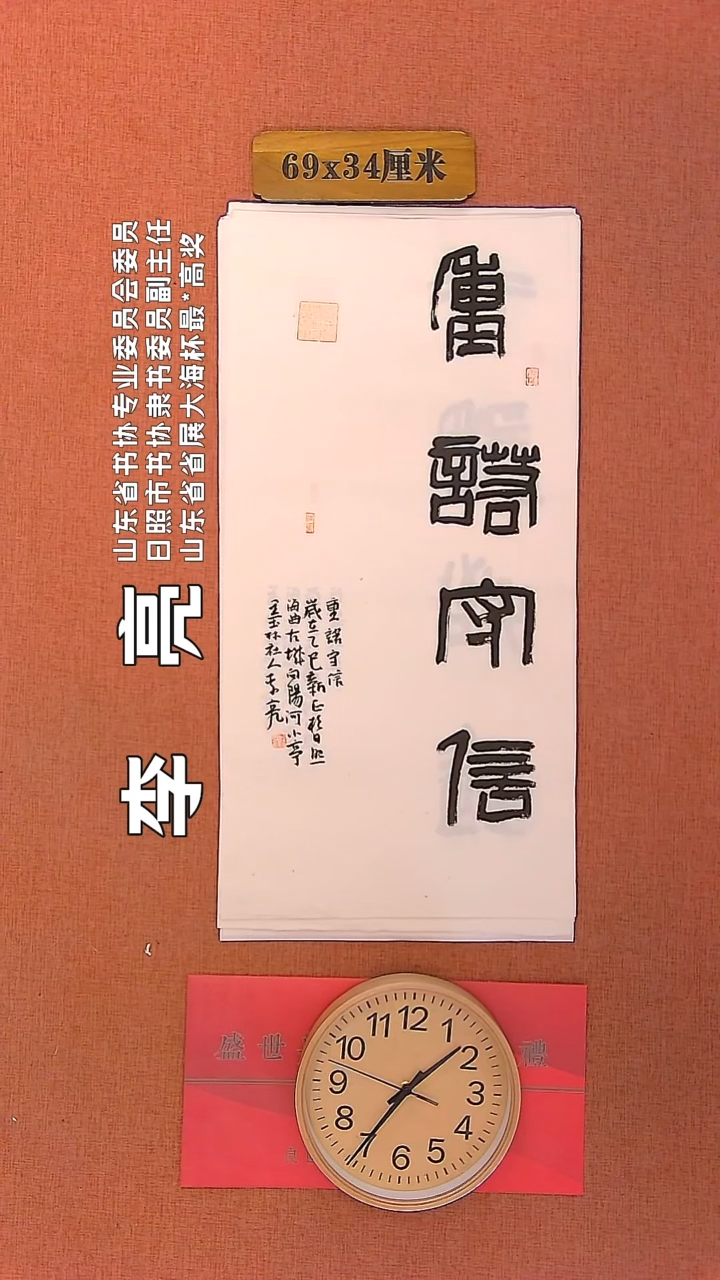 69x34厘米
重諾守信
重諾守信
歲在乙巳新正於日照
海曲古城向陽河小亭
李亮
山东省书协专业委员会委员
日照市书协隶书委员副主任
山东省省展大海杯最*高奖
李 亮
盛世
禮
12
1
2
3
4
5
6
7
8
9
10
11